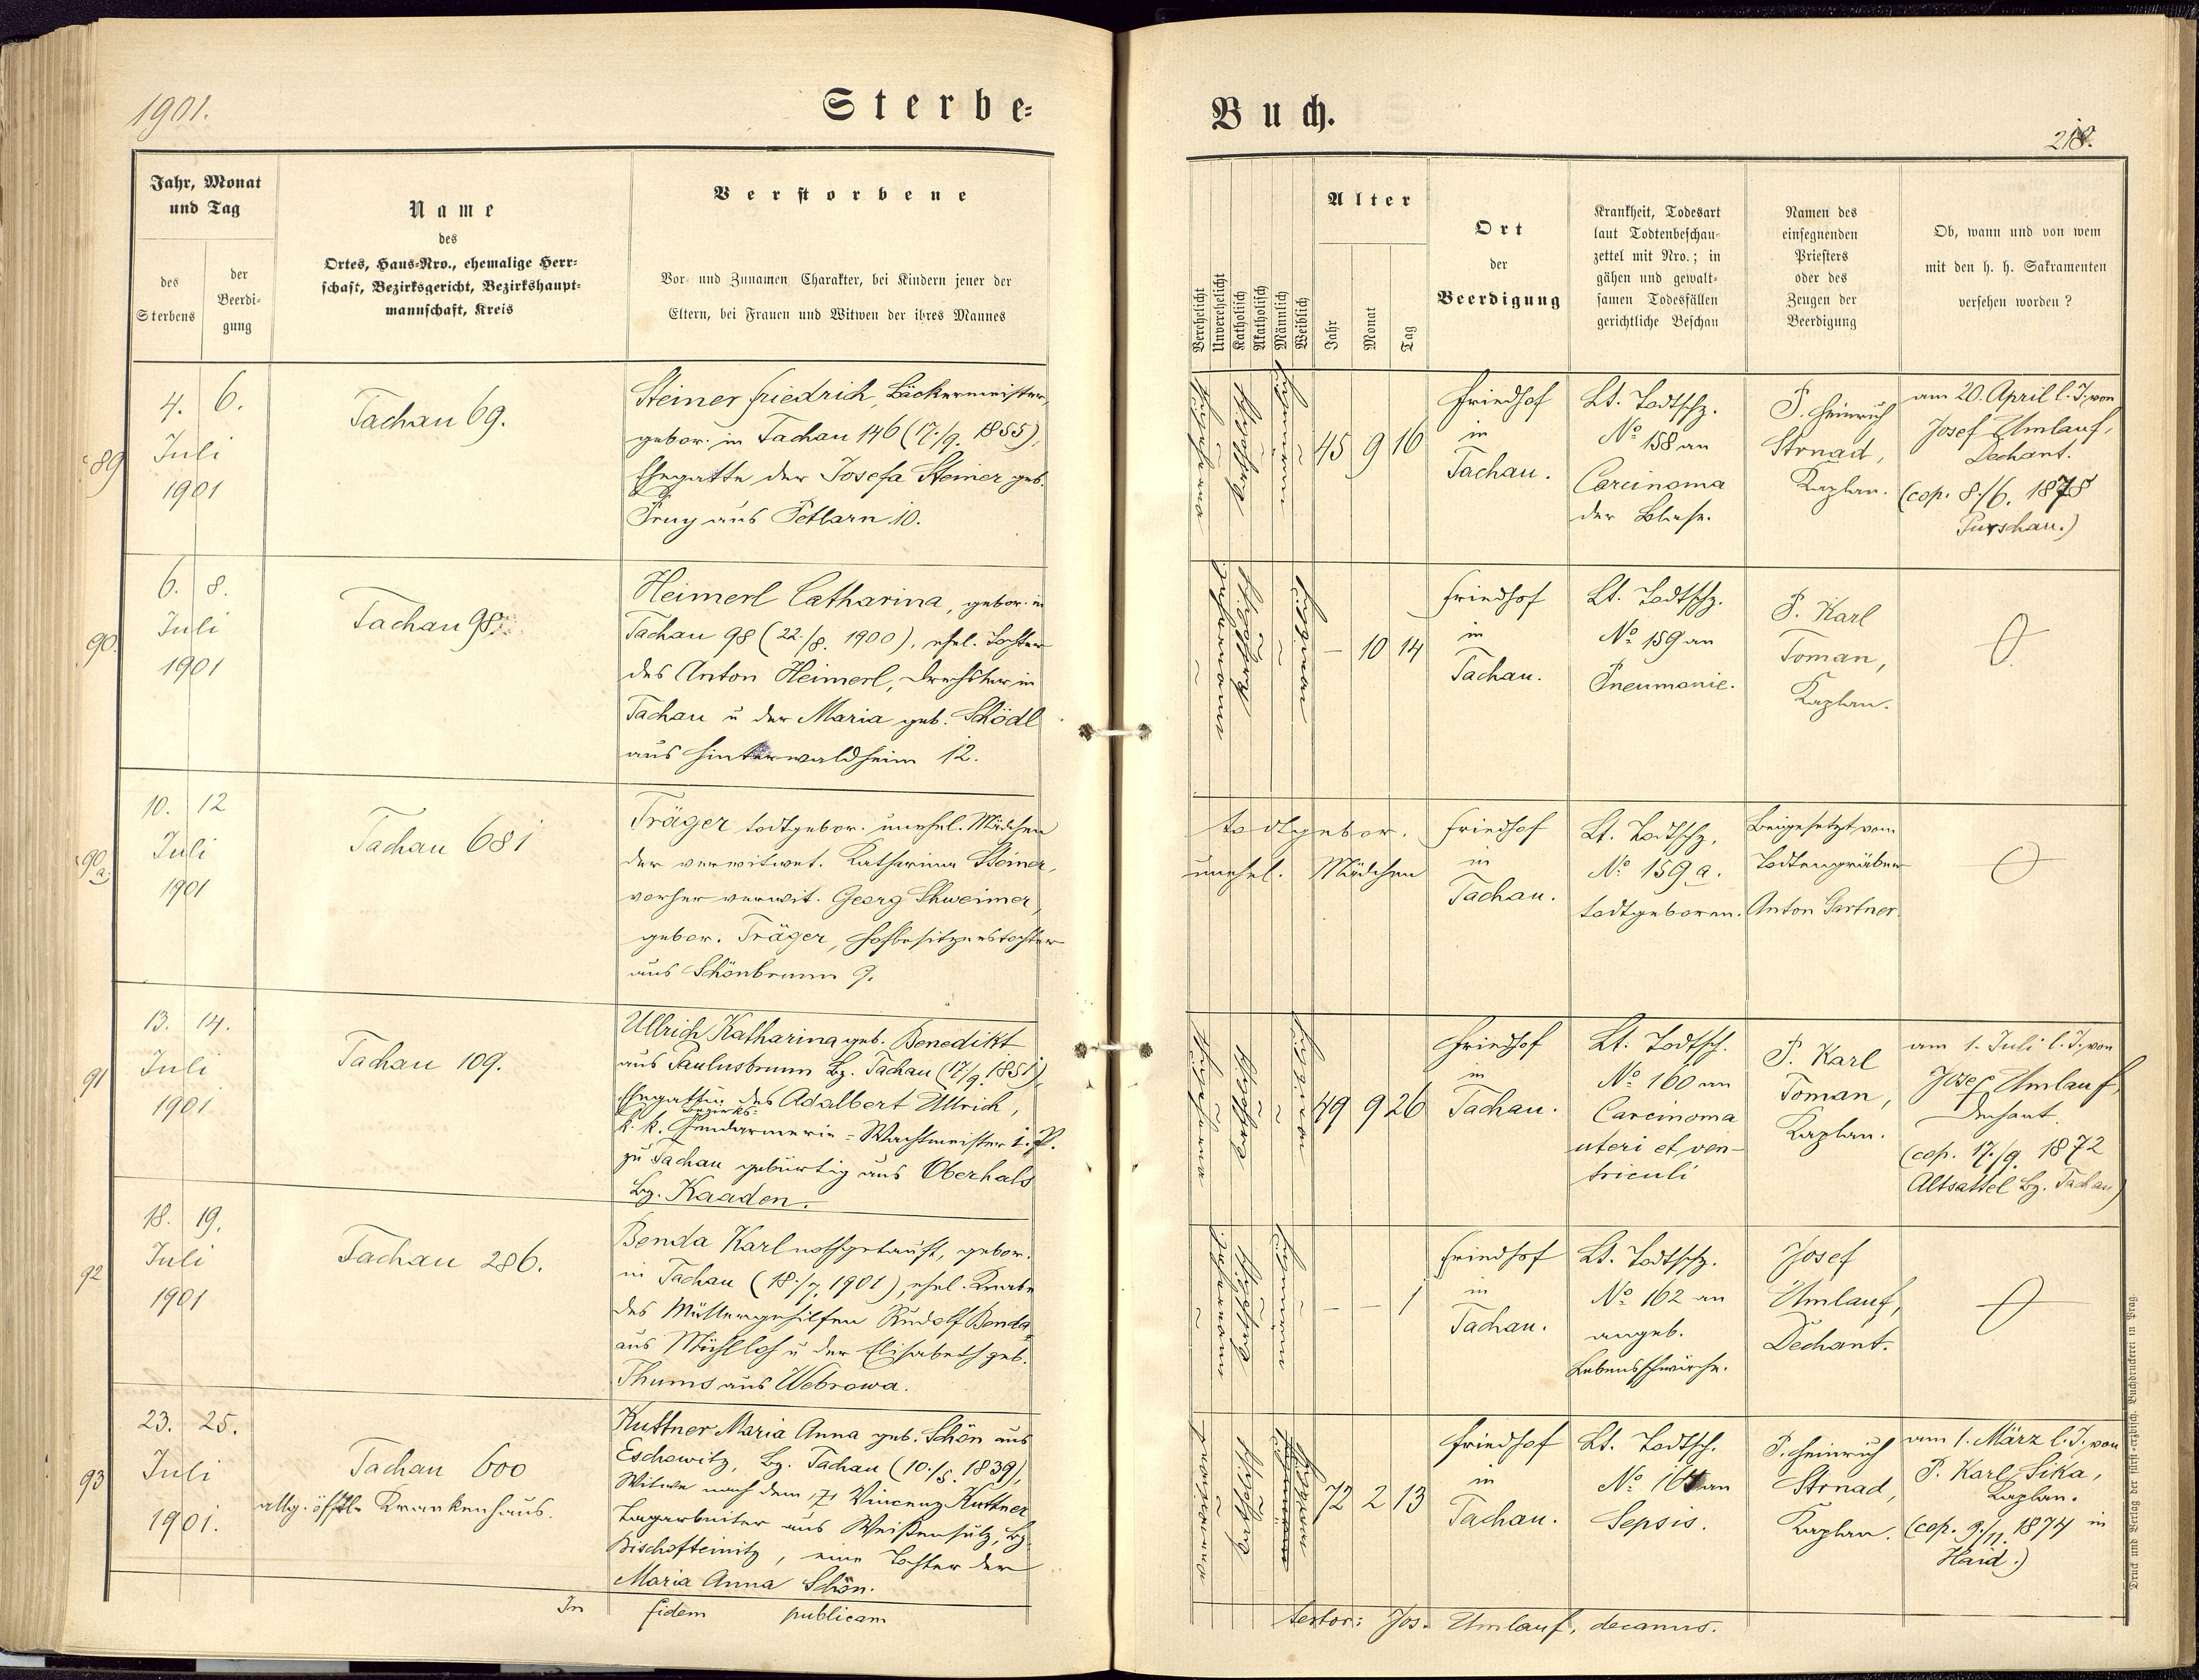 1901.
Sterbe-
Jahr, Monat
und Tag
des
Sterbens
der
Beerdi-
gung
Name
des
Ortes, Haus-Nro., ehemalige Herr-
schaft, Bezirksgericht, Bezirkshaupt-
mannschaft, Kreis
Verstorbene
Vor- und Zunamen Charakter, bei Kindern jener der
Eltern, bei Frauen und Witwen der ihres Mannes
89
4. 6.
Juli
1901
Tachau 69.
Steiner Friedrich, Bäckermeister,
gebor. in Tachau 146 (17./9. 1855),
Ehegatte der Josefa Steiner geb.
aus Petlarn 10.
90.
6. 8.
Juli
1901
Tachau 98
Heimerl Catharina, gebor. in
Tachau 98 (22./8. 1900), ehel. Tochter
des Anton Heimerl, Drechsler in
Tachau u der Maria geb. Schödl
aus Hinterwaldheim 12.
90
a.
10. 12
Juli
1901
Tachau 681
Träger todtgebor. unehel. Mädchen
der verwitwet. Katharina Steiner,
vorher verwit. Georg Schweimer,
gebor. Träger, Hofbesitzerstochter
aus Schönbrunn 9.
91
13. 14.
Juli
1901
Tachau 109.
Ullrich Katharina geb. Benedikt
aus Paulusbrunn Bz. Tachau (17/9. 1851),
Ehegattin des Adalbert Ullrich,
Bezirks-
k. k. Gendarmerie-Wachtmeister i. P.
zu Tachau gebürtig aus Oberhals
Bz. Kaaden.
92
18. 19.
Juli
1901
Tachau 286.
Benda Karl nothgetauft, gebor.
in Tachau (18./7. 1901), ehel. Knabe
des Müllergehilfen Rudolf Benda
aus Mühlloh u der Elisabeth geb.
Thums aus Webrowa.
93
23. 25.
Juli
1901.
Tachau 600
allg. öfftl. Krankenhaus.
Kuttner Maria Anna geb. Schön aus
Eschowitz, Bz. Tachau (10./5. 1839),
Witwe nach dem † Vincenz Kuttner
Tagarbeiter aus Weißensulz, Bz.
Bischofteinitz, eine Tochter der
Maria Anna Schön.
In fidem publicam
Buch.
Verehelicht
Unverehelicht
Katholisch
Akatholisch
Männlich
Weiblich
Alter
Jahr
Monat
Tag
Ort
der
Beerdigung
Krankheit, Todesart
laut Todtenbeschau-
zettel mit Nro.; in
gähen und gewalt-
samen Todesfällen
gerichtliche Beschau
Namen des
einsegnenden
Priesters
oder des
Zeugen der
Beerdigung
Ob, wann und von wem
mit den h. h. Sakramenten
versehen worden?
katholisch
45 9 16
Friedhof
in
Tachau.
Lt. Todtschz.
No 158 an
Carcinoma
der Blase.
P. Heinrich
Strnad,
Kaplan.
am 20. April l. J. von
Josef Umlauf,
Dechant.
(cop. 8./6. 1878
Purschau.)
katholisch
— 10 14
Friedhof
in
Tachau.
Lt. Todtschz.
No 159 an
Pneumonie.
P. Karl
Toman,
Kaplan.
todtgebor.
unehel. Mädchen
Friedhof
in
Tachau.
Lt. Todtschz.
No 159 a.
todtgeboren.
Beigesetzt vom
Todtengräber
Anton Gartner.
katholisch
49 9 26
Friedhof
in
Tachau.
Lt. Todtsch.
No 160 an
Carcinoma
uteri et ven-
triculi
P. Karl
Toman,
Kaplan.
am 1. Juli l. J. von
Josef Umlauf,
Dechant
(cop. 17./9. 1872
Altsattel Bz. Tachau)
katholisch
— — 1
Friedhof
in
Tachau.
Lt. Todtschz.
No 162 an
angeb.
Lebensschwäche.
Josef
Umlauf,
Dechant.
katholisch
72 2 13
Friedhof
in
Tachau.
Lt. Todtsch.
an
Sepsis.
P. Heinrich
Strnad,
Kaplan.
am 1. März l. J. von
P. Karl Sika,
Kaplan.
(cop. 9./11. 1874 in
Haid.)
testor: Jos. Umlauf, decanus.
Druck und Verlag der fürst-erzbisch. Buchdruckerei in Prag.